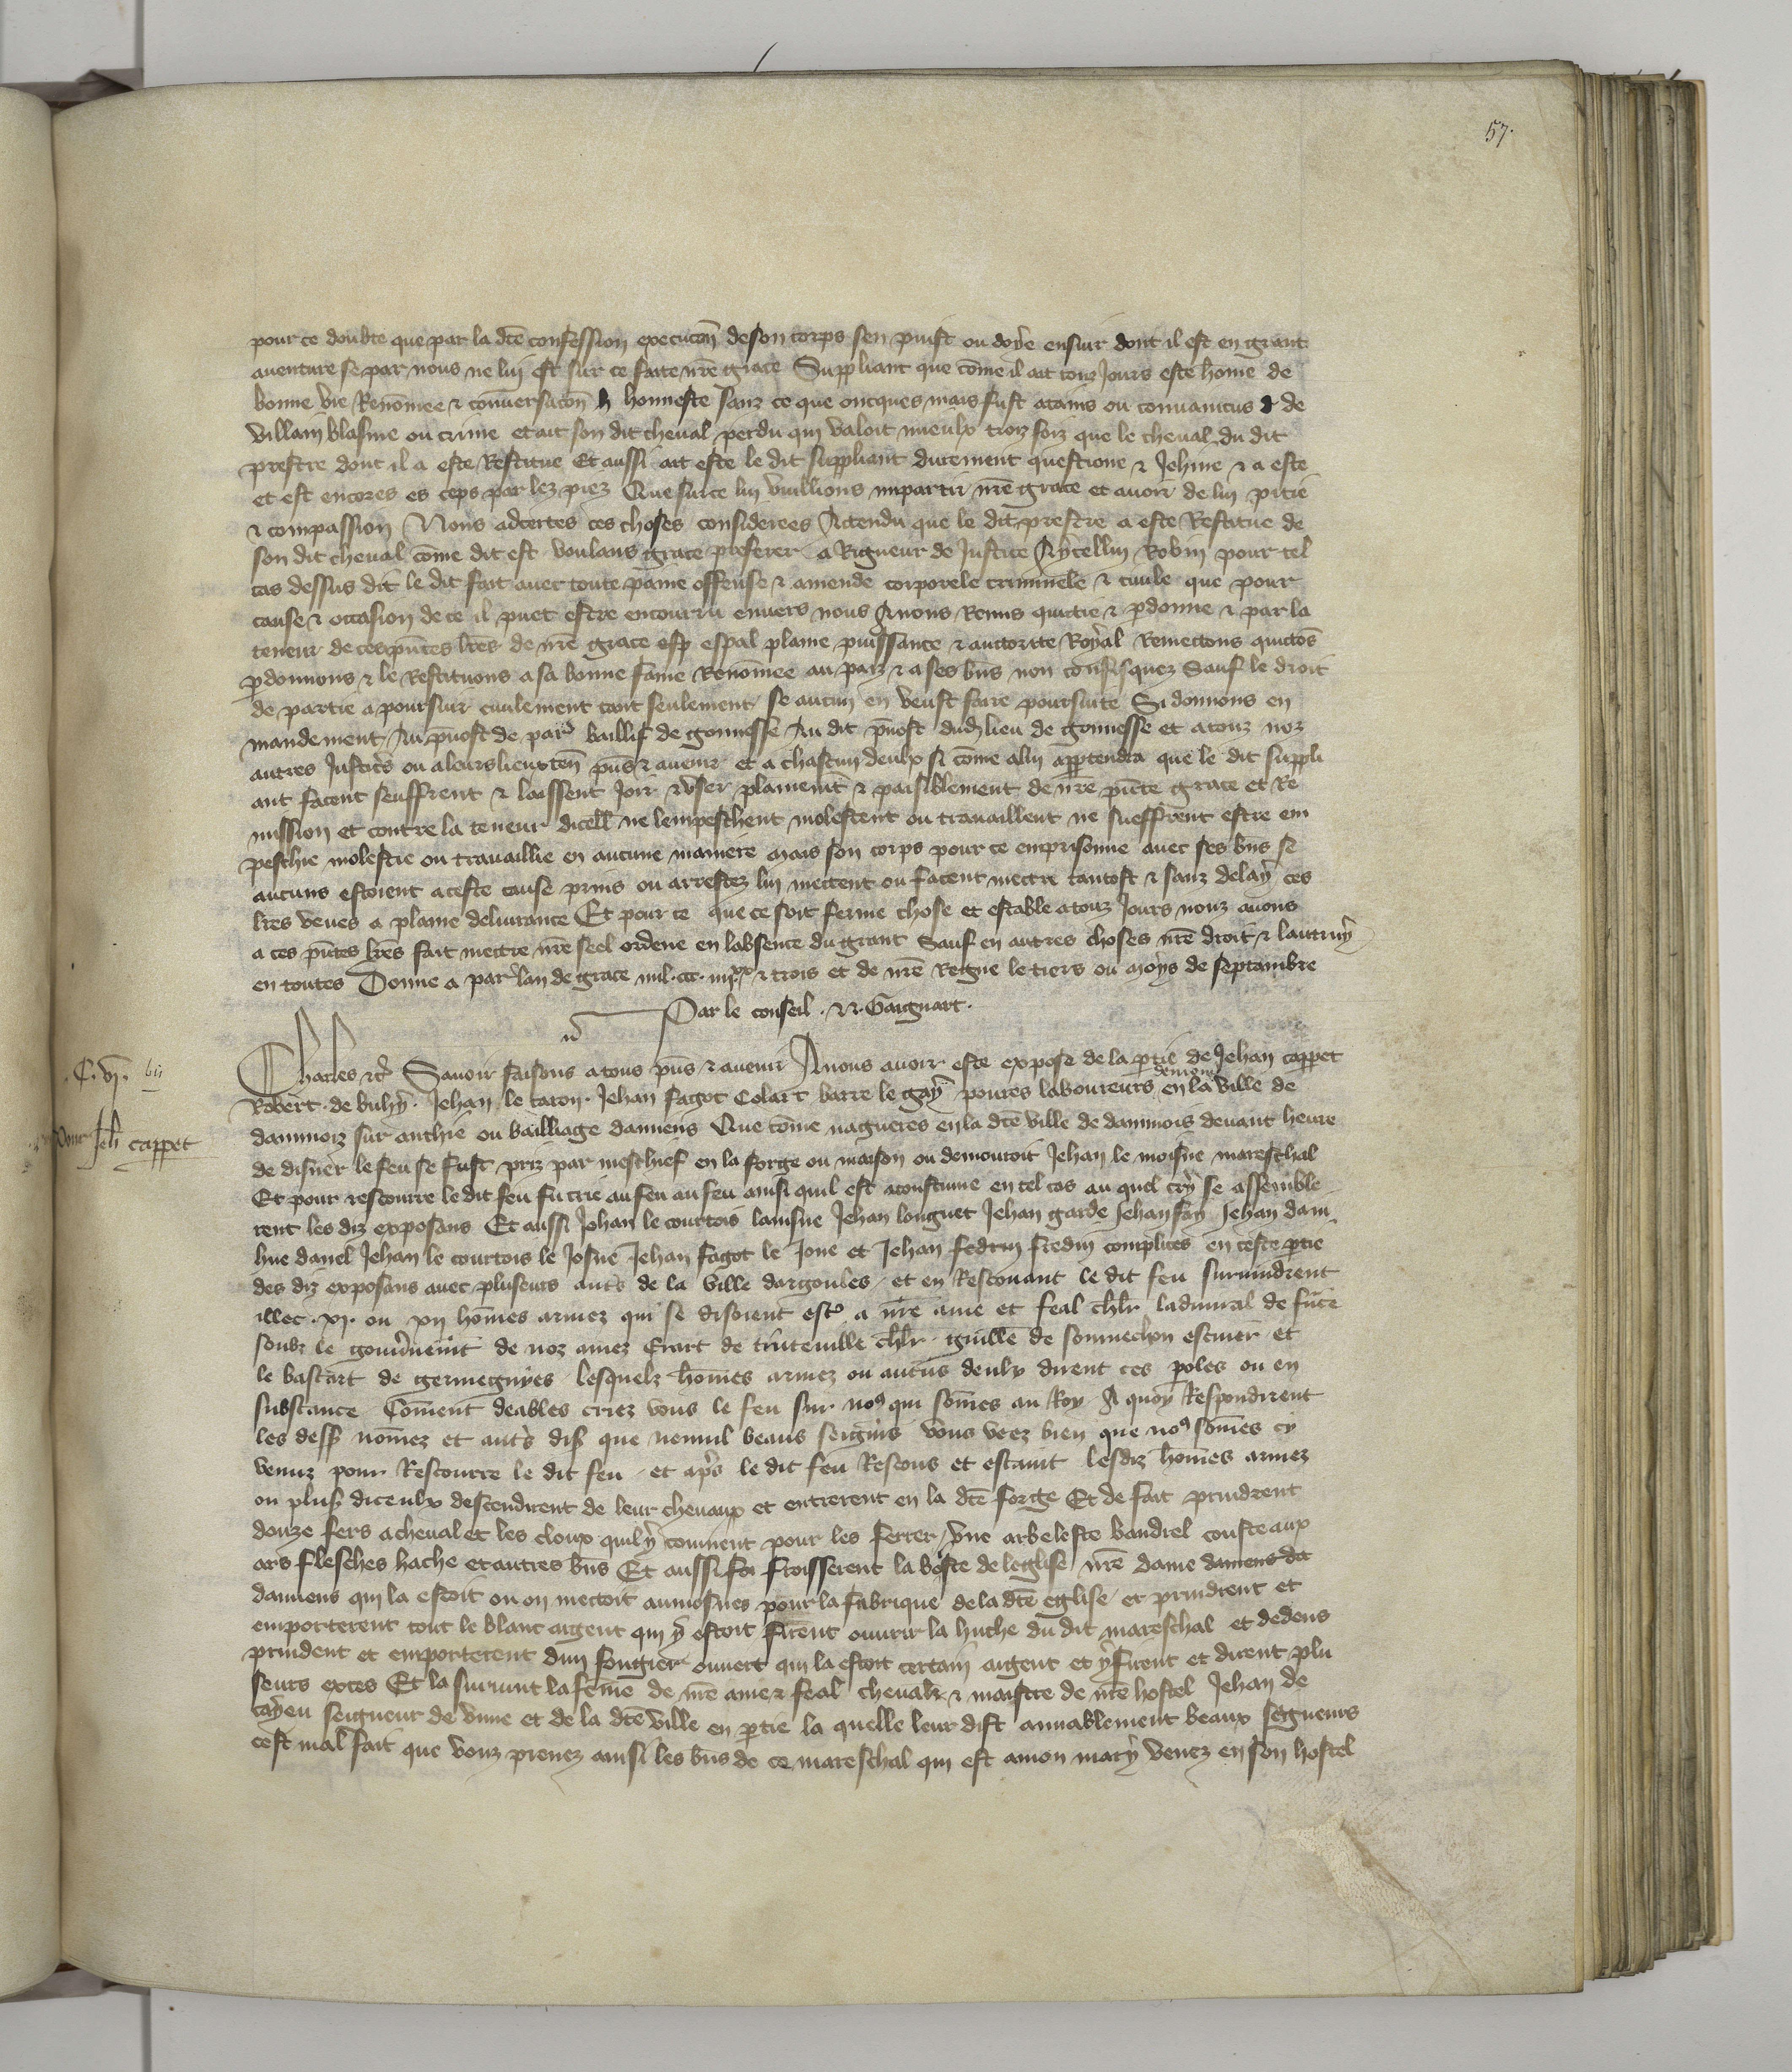 57.
pour ce doubte que par la dte confession execucon de son corps sen puist ou doye ensuir dont il est en grant
aventure se par nous ne lui est sur ce faite nre grace Suppliant que come il ait touz Jours este home de
bonne vie Renomee & conversacon h honneste sanz ce que oncques mais fust atains ou convaincus de
villain blasme ou crime et ait son dit cheval perdu qui valoit mieulx troiz foiz que le cheval du dit
prestre dont il a este Restitue Et aussi ait este le dit suppliant durement questione & Jehine & a este
et est encores es ceps par lez piez Que sur ce lui vuillions impartir nre grace et avoir de lui pitie
& compassion Nous adcertes ces choses considerees Actendu que le dit prestre a este Restitue de
son dit cheval come dit est voulans grace preferer a Rigueur de Justice Aycellui Robin pour tel
cas dessus dit le dit fait avec toute paine offense & amende corporele criminele & civile que pour
cause & occasion de ce il puet estre encouru envers nous Avons Remis quictie & pdonne & par la
teneur de ces pntes lres de nre grace esp espal plaine puissance & auctorite Royal Remectons quictos
pdonnons & le Restituons a sa bonne fame Renomee au paiz & a ses bns non confisquez Sauf le droit
de partie a poursuir civilement tant seulement se aucun en veust faire poursuite Si donnons en
mandement Au pvost de par baillif de gonnesse Au dit pvost dud lieu de gonnesse et a touz noz
autres Justic's ou a leurs lieuxten pns & avenir et a chascun deulx si come a lui appartendra que le dit suppli
ant facent seuffrent & laissent Joir & user plainemt & paisiblement de nre pnte grace et Re
mission et contre la teneur dicell ne lempeschent molestent ou travaillent ne sueffrent estre em
peschie molestie ou travaillie en aucune maniere mais son corps pour ce emprisonne avec ses bns se
aucuns estoient a ceste cause prins ou arrestez lui mectent ou facent mectre tantost & sanz delay ces
lres veues a plaine delivrance Et pour ce que ce soit ferme chose et estable a touz Jours nouz avons
a ces pntes lres fait mectre nre seel ordene en labsence du grant Sauf en autres choses nre droit & lautruy
en toutes Donne a par lan de grace mil ccc iiij xx & trois et de nre Regne le tiers ou moys de septambre
Par le conseil . N. Gaignart.
C. vj. vij
Charles &c Savoir faisons a tous pns & avenir A nous avoir este expose de la ptie de Jehan cappet
Robert de buhy Jehan le caron Jehan fagot Colart barre le gay povres laboureurs demour en la ville de
Pour Jeh cappet
dammoiz sur authie ou bailliage damiens Que come nagueres en la dte ville de dammois devant heure
de disner le feu se fust priz par meschief en la forge ou maison ou demouroit Jehan le moisne mareschal
Et pour rescourre le dit feu fu crie au feu au feu ainsi quil est acoustume en tel cas au quel cry se assemble
rent les diz exposans Et aussi Jehan le courtois lainsne Jehan longuet Jehan garde Jehan fay Jehan dam
hue danel Jehan le courtois le Josne Jehan fagot le Jone et Jehan fedrin fredin complices en ceste ptie
des diz exposans avec pluseurs autes de la ville dargoules et en Rescouant le dit feu survindrent
illec . xj . ou xij homes armez qui se disoient est a nre ame et feal chlr ladmiral de fnce
soubz le gouvnemt de noz amez Erart de tinteville chlr guille de sommechon escuier et
le bastart de germegnyes lesquelz homes armez ou aucuns deulx dirent ces poles ou en
substance Coment deables criez vous le feu sur nos qui somes au Roy A quoy Respondirent
les dess nomez et autes diss que nennil beaus seigns vous veez bien que nos somes cy
venuz pour Rescourre le dit feu et aps le dit feu Rescous et estaint les diz homes armez
ou pluss diceulx descendirent de leur chevaux et entrerent en la dte forge Et de fait prindrent
douze fers a cheval et les cloux quily convient pour les ferrer / une arbeleste baudrel cousteaux
ars flesches hache et autres bns Et aussi fo froisserent la boiste de leglise nre dame damens da
damiens qui la estoit ou on mectoit aumosnes pour la fabrique de la dte eglise et prindrent et
emporterent tout le blanc argent qui y estoit firent ouvrir la huche du dit mareschal et dedens
prindent et emporterent dun fougier ouvert qui la estoit certain argent et y firent et dirent plu
seurs exces Et la survint la feme de nre ame & feal chevalr & maistre de nre hostel Jehan de
cayeu seigneur de vime et de la dte ville en ptie la quelle leur dist amiablement beaux seigneurs
cest mal fait que vouz prenez ainsi les bns de ce mareschal qui est a mon mary venez en son hostel